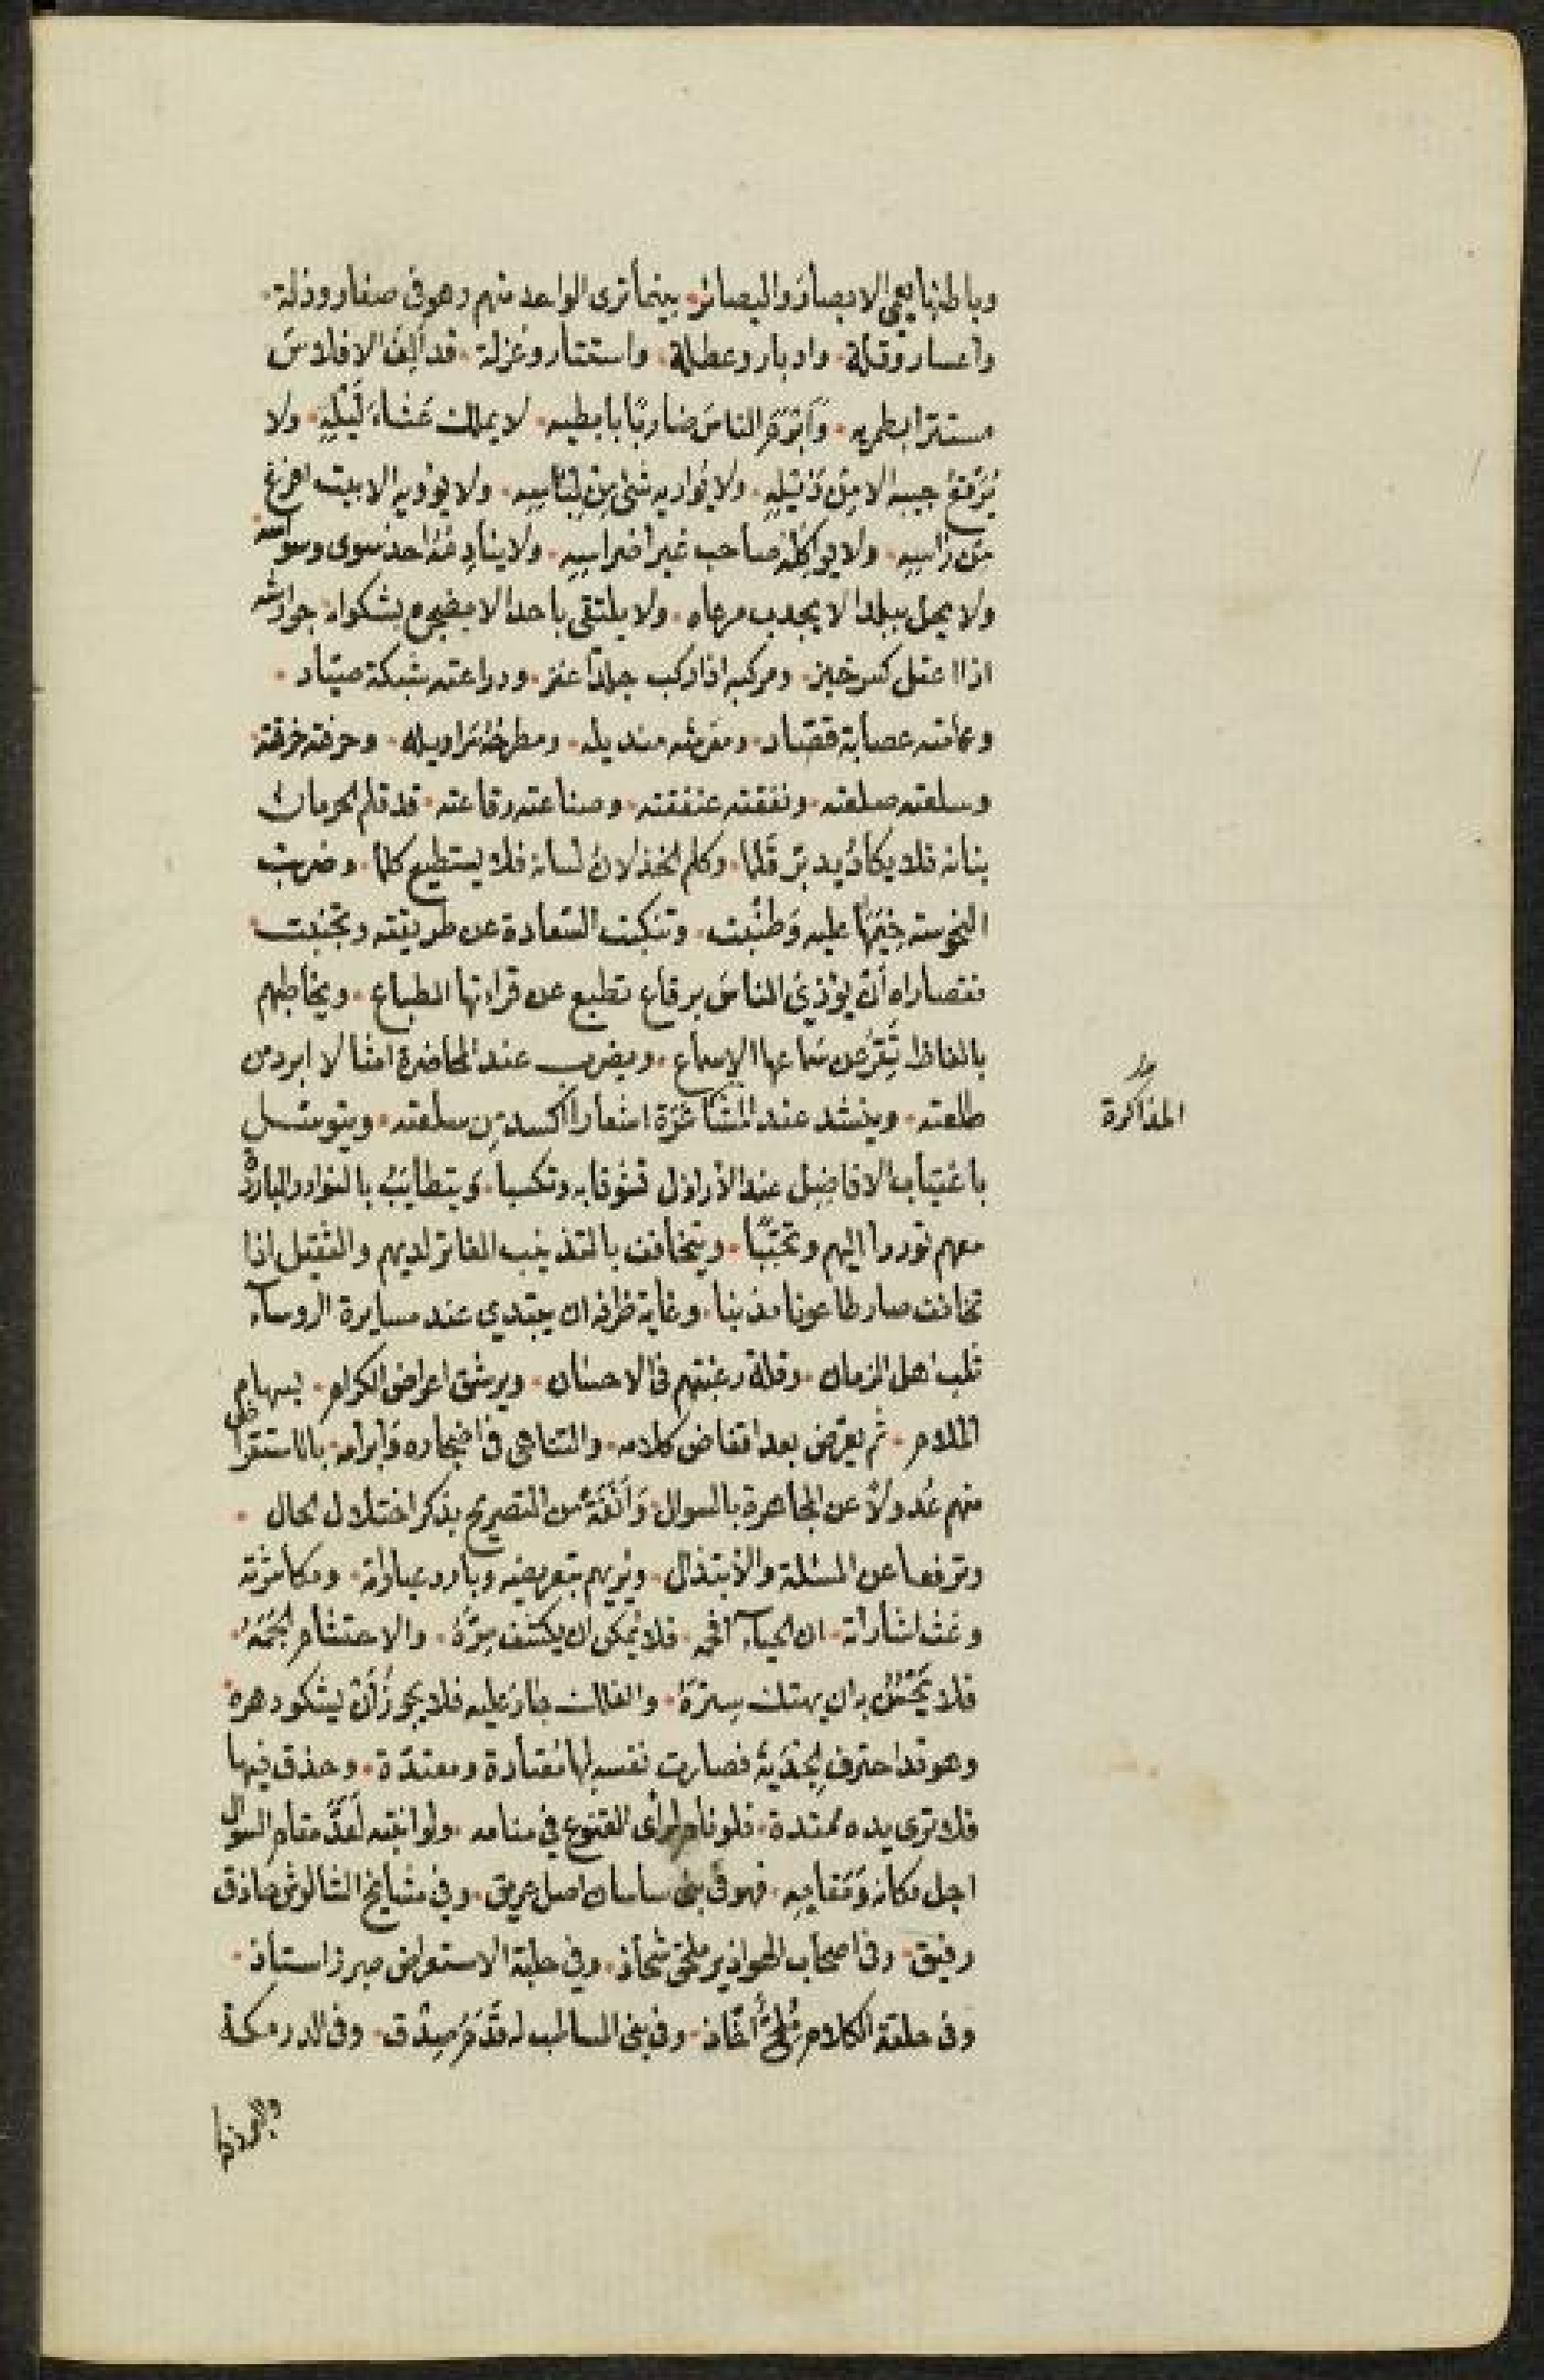 وباطنها يعمي الابصار والبصائر، بينما ترى الواحد منهم وهو في صغار وذلة،
واعسار وقلة، وادبار وعطلة، واستتار وعزلة، قد ألِفَ الافلاسَ
مستترا بطمريه، وَأبْرَمَ الناسَ ضاربًا بابطيه، لا يملك عَشاءَ لَيْلِهِ، ولا
يُرَقِّعُ جيبه الا مِنْ ذَيْلِهِ، ولا يُواريه شئ مِن لِبَاسِهِ، ولا يؤويه الا بيت افرغ
مِن رَاسِهِ، ولا يواكِلُهُ صاحب غير أضراسِهِ، ولا ينادِمُهُ احد سوى وسواسه
ولا يحل ببلد الا يجدب مرعاه، ولا يلتقي باحد الا يضجره بشكواه، جوارشه
اذا اعتل كسر خبز، ومركبه اذا ركب جلدُ عنز، ودراعته شبكة صيّاد،
وعمامته عصابة فصّاد، ومفرشه منديله، ومطرحُهُ سَراويله، وحرفته خرقته
وسلعته صلعته، ونفقته عنفقته، وصناعته رقاعته، قد قلم الحرمان
بنانه فلا يكاد يدبّر قلما، وكلم الخذلان لسانه فلا يستطيع كلما، وضربت
النحوسة خِيَمَهَا عليه وَطنّبت، وتنكبت السّعادة عن طريقته وتجنبت
فقصاراه أنْ يؤذيَ الناسَ برقاع تطبع عن قراءتها الطباع، ويخاطبهم
بالفاظ تَفِرُّ عن سَماعها الاسماع، ويضرب عند المحاضرة امثالا ابرد من
المذاكرة
طلعته، وينشد عند المشاعَرَة اشعارا اكسد مِن سلعته، ويتوسّل
باغتياب الافاضِل عند الأراذل تسوقا به وتكسبا، وَيتطايَبُ بالنوادر الباردة
معهم توددا اليهم وتحببًا، ويتخافف بالتذنيب الفاتر لديهم والثقيل اذا
تخافف صار طاعونا مذنبا، وغاية ظرفه ان يبتدي عند مسايرة الروساء
ثلب اهل الزمان، وقلة رغبتهم في الاحسان، ويرشق اعراض الكرام، بسهام
الملام، ثم يعرّض بعد انقاض كلامه، والتناهي في اضجاره وَابرامه، بالاستقراض
منهم عُدولاً عن المجاهرة بالسوال وَأنَفَةً من التصريح بذكر اختلال الحال،
وترفعا عن المسئلة والأبتذال، ويُريهم بتعريضه وبارد عباراته، ومكاشرته
وغث اشاراته، ان الحياء افحمه، فلا يُمكن ان يكشف سِرَّهُ، والاحتشام الجَمَهُ،
فلا يَحْسُنُ به ان يهتك سِترَهُ، والفلك جارَ عليه فلا يجوز أنْ يشكو دهره
وهو قد احترف الجَدْيَةَ فصارت نفسه لها مُعتادة ومعتدّة، وحذق فيها
فلا ترى يده ممتدة، فلو نام لرأى القنوع في منامه، ولو انبته لعَدَّ مقام السوال
اجل مكانه وَمَقامِهِ، فهو في بني ساسان اصل عريق، وفي مشايخ الشالوش حاذق
رفيق، وفي اصحاب الحواذير ملحّ شحّاذ، وفي حلبة الاستعراض مبرز استاذ،
وفي حلقة الكلام مُلِحٌّ أخّاذ، وفي بني المساطب له قَدَمَ صِدْق، وفي الدرمكة